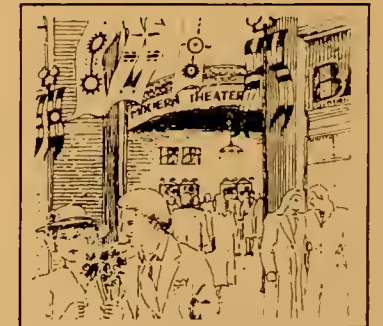 MODERN THEATER